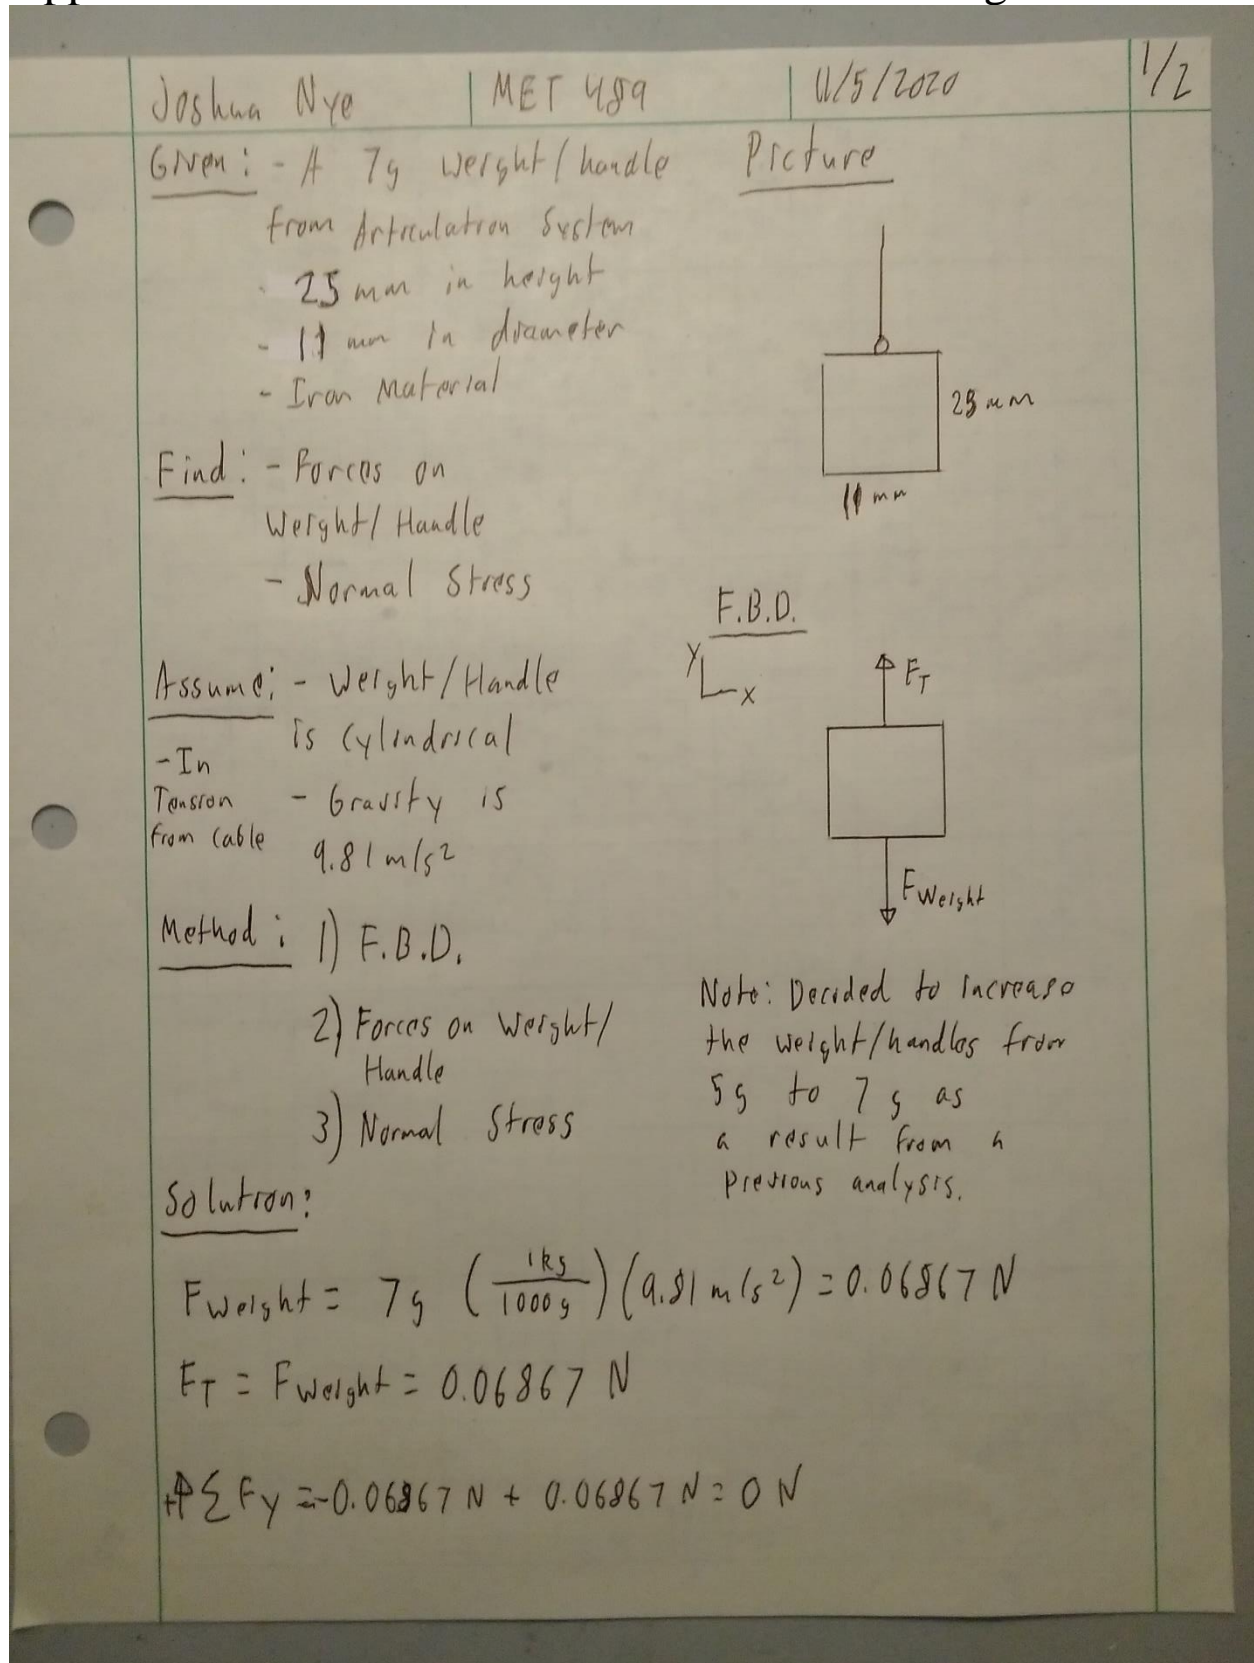 Joshua Nye | MET 489 | 11/5/2020 1/2
Given: - A 7g weight/handle
from Articulation System
- 25 mm in height
- 11 mm in diameter
- Iron Material
Picture
25 mm
11 mm
Find: - Forces on
Weight/Handle
- Normal Stress
F.B.D.
Y
X
F_T
F_Weight
Assume: - Weight/Handle
is Cylindrical
- Gravity is
9.81 m/s²
- In
Tension
from Cable
Method: 1) F.B.D.
2) Forces on Weight/
Handle
3) Normal Stress
Note: Decided to increase
the weight/handles from
5g to 7g as
a result from a
previous analysis.
Solution:
F_Weight = 7g (1kg/1000g)(9.81 m/s²) = 0.06867 N
F_T = F_Weight = 0.06867 N
+↑ΣF_y = -0.06867 N + 0.06867 N = 0 N